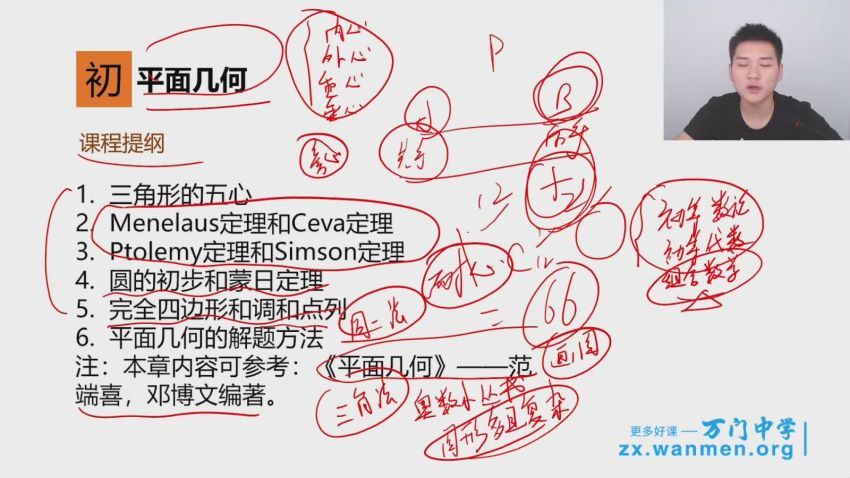 初 平面几何
课程提纲
1. 三角形的五心
2. Menelaus定理和Ceva定理
3. Ptolemy定理和Simson定理
4. 圆的初步和蒙日定理
5. 完全四边形和调和点列
6. 平面几何的解题方法
注：本章内容可参考：《平面几何》——范
端喜，邓博文编著。
内心
外心
重心
垂心
P
B
同一法
66
画图
三角法
奥数小丛书
图形多且复杂
初等数论
初等代数
组合数学
更多好课 — 万门中学
zx.wanmen.org